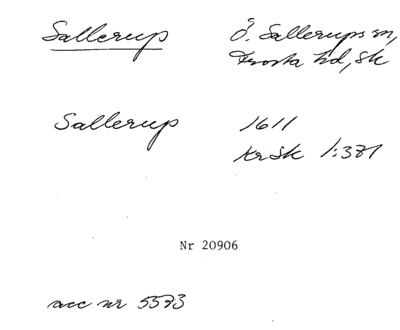 Sallerup Ö. Sallerups sn,
Frosta hd, Sk
Sallerup 1611
KrSk 1:371
Nr 20906
acc nr 5573